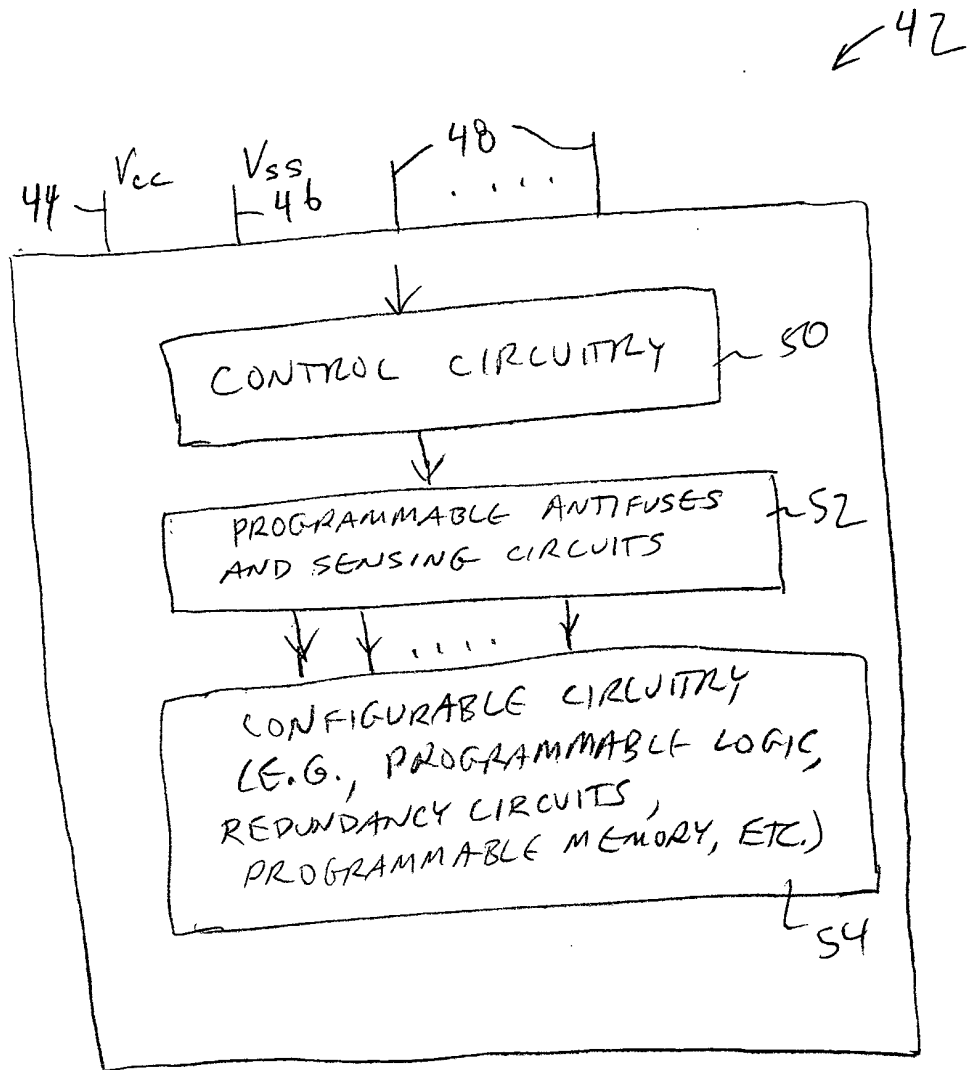 42
48
44 Vcc Vss 46
CONTROL CIRCUITRY 50
PROGRAMMABLE ANTIFUSES 52
AND SENSING CIRCUITS
CONFIGURABLE CIRCUITRY
(E.G., PROGRAMMABLE LOGIC,
REDUNDANCY CIRCUITS,
PROGRAMMABLE MEMORY, ETC.)
54